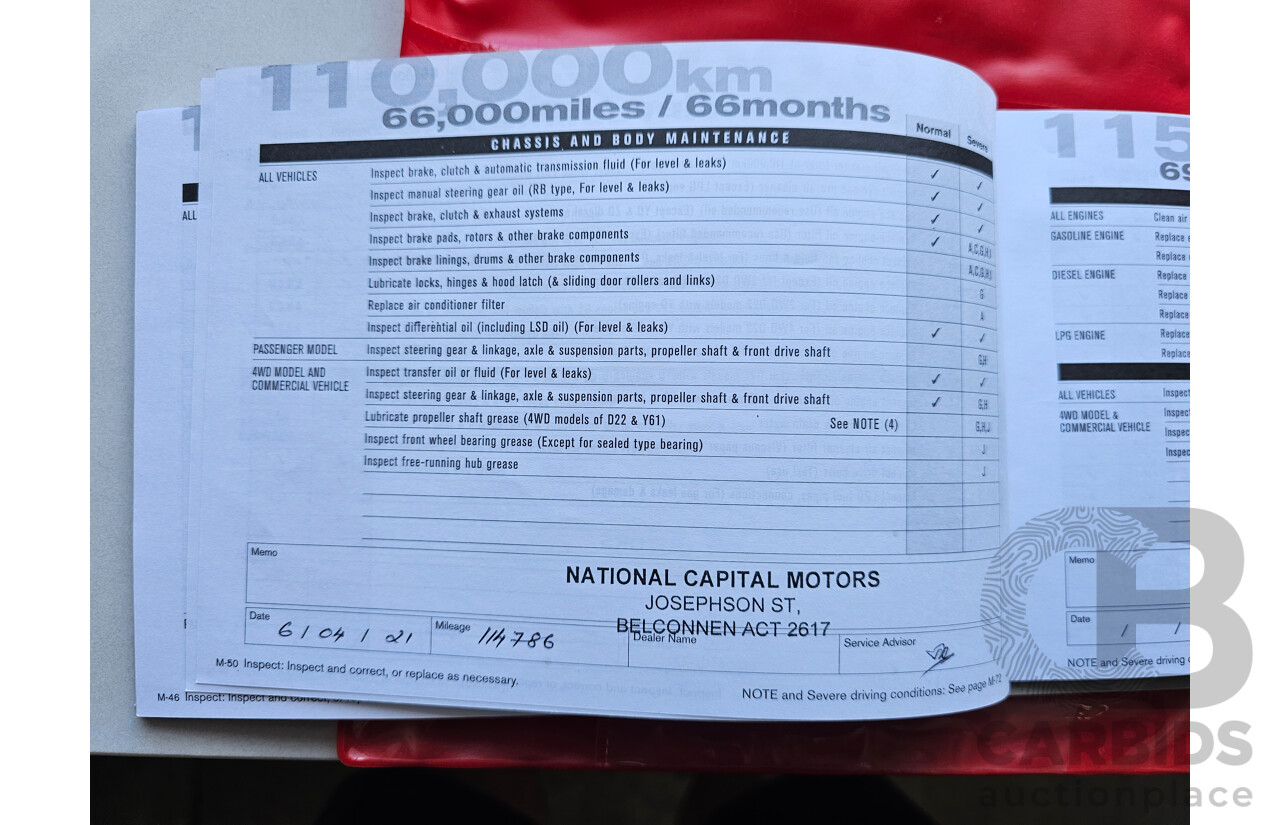 110,000km
66,000miles / 66months
CHASSIS AND BODY MAINTENANCE
Normal Severe
ALL VEHICLES Inspect brake, clutch & automatic transmission fluid (For level & leaks) ✓ ✓
Inspect manual steering gear oil (RB type, For level & leaks) ✓ ✓
Inspect brake, clutch & exhaust systems ✓ ✓
Inspect brake pads, rotors & other brake components ✓ A,C,G,H,I
Inspect brake linings, drums & other brake components A,C,G,H,I
Lubricate locks, hinges & hood latch (& sliding door rollers and links) G
Replace air conditioner filter A
Inspect differential oil (including LSD oil) (For level & leaks) ✓ ✓
PASSENGER MODEL Inspect steering gear & linkage, axle & suspension parts, propeller shaft & front drive shaft G,H
4WD MODEL AND Inspect transfer oil or fluid (For level & leaks) ✓ ✓
COMMERCIAL VEHICLE Inspect steering gear & linkage, axle & suspension parts, propeller shaft & front drive shaft ✓ G,H
Lubricate propeller shaft grease (4WD models of D22 & Y61) See NOTE (4) G,H,J
Inspect front wheel bearing grease (Except for sealed type bearing) J
Inspect free-running hub grease J
Memo
NATIONAL CAPITAL MOTORS
JOSEPHSON ST,
BELCONNEN ACT 2617
Date 6 / 04 / 21 Mileage 114786 Dealer Name Service Advisor
M-50 Inspect: Inspect and correct, or replace as necessary.
NOTE and Severe driving conditions: See page M-72
M-46 Inspect: Inspect and
ALL
115
69
ALL ENGINES Clean air
GASOLINE ENGINE Replace
Replace
DIESEL ENGINE Replace
Replace
Replace
LPG ENGINE Replace
Replace
ALL VEHICLES Inspect
4WD MODEL & Inspect
COMMERCIAL VEHICLE Inspec
Inspec
Memo
Date / /
NOTE and Severe driving
CB
CARBIDS
auctionplace